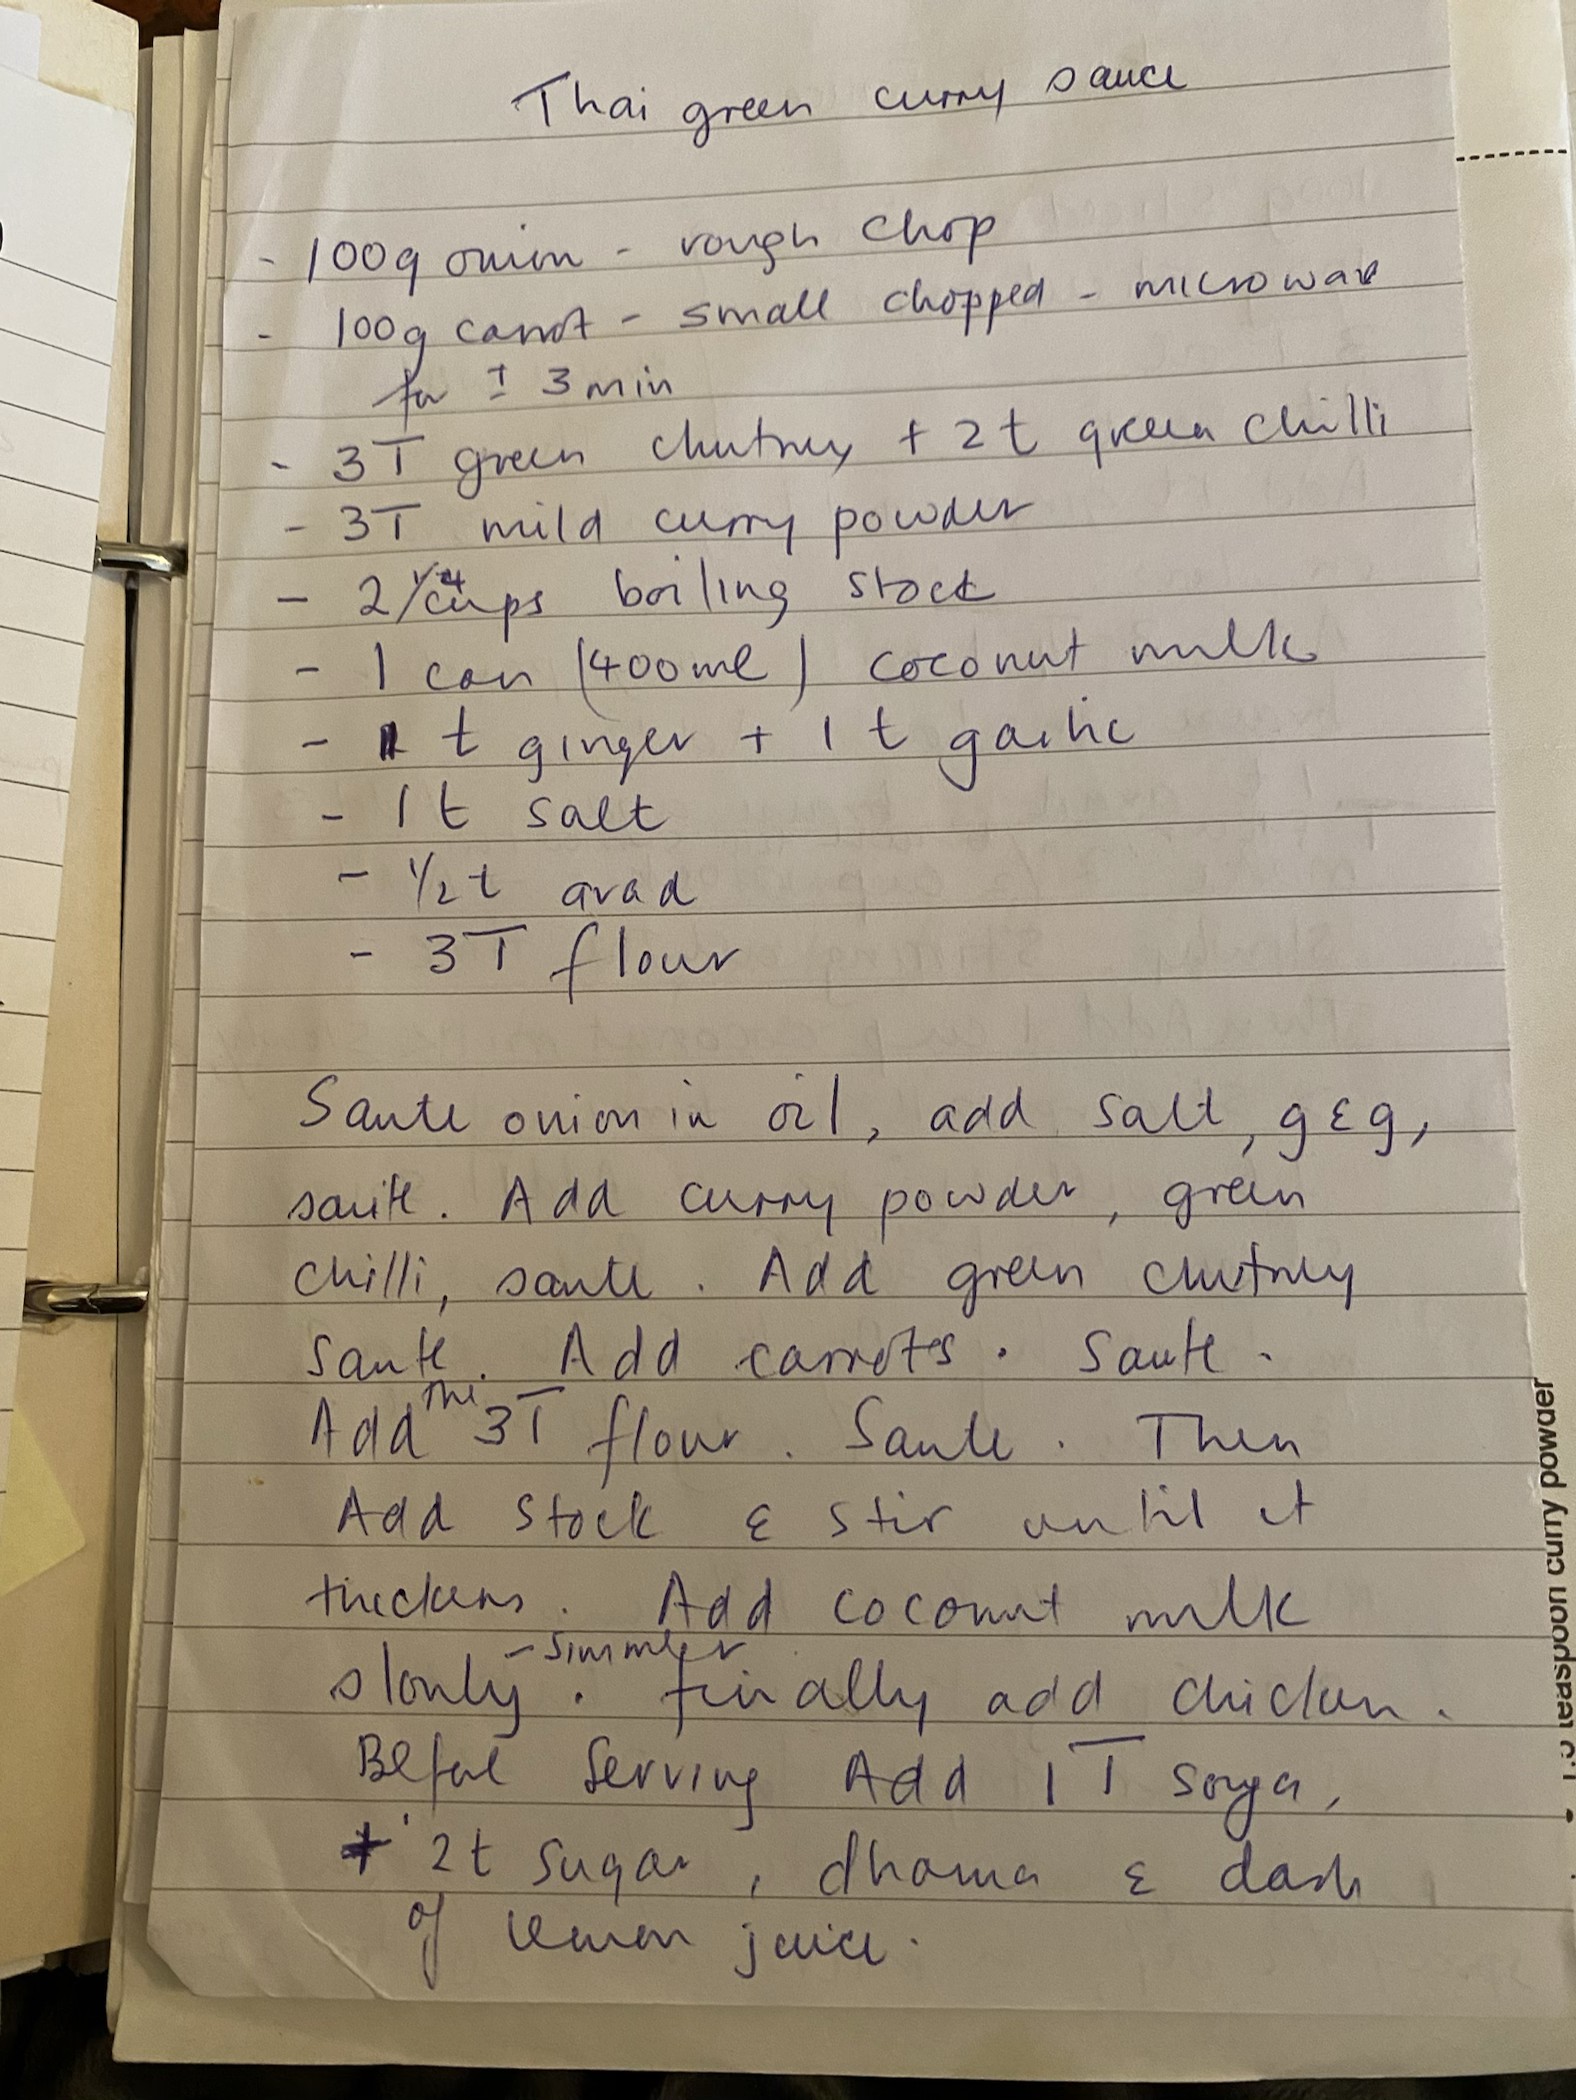 Thai green curry sauce
- 100g onion - rough chop
- 100g carrot - small chopped - microwave
for ± 3 min
- 3T green chutney + 2t green chilli
- 3T mild curry powder
- 2 1/4 cups boiling stock
- 1 can (400ml) coconut milk
- 1 t ginger + 1 t garlic
- 1t salt
- 1/2 t arad
- 3T flour
Saute onion in oil, add salt, g & g,
saute. Add curry powder, green
chilli, saute. Add green chutney
saute. Add carrots. Saute.
Add the 3T flour. Saute. Then
Add stock & stir until it
thickens. Add coconut milk
slowly - simmer. finally add chicken.
Before Serving Add 1T soya,
+ 2t sugar, dhania & dash
of lemon juice.
teaspoon curry powder